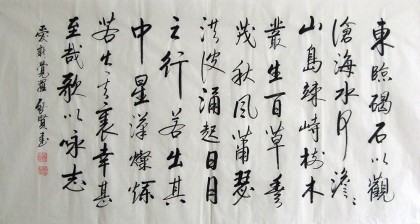 東臨碣石以觀
滄海水何澹々
山島竦峙樹木
叢生百草豐
茂秋風蕭瑟
洪波涌起日月
之行若出其
中星漢燦爛
若出其裏幸甚
至哉歌以咏志
愛新覺羅